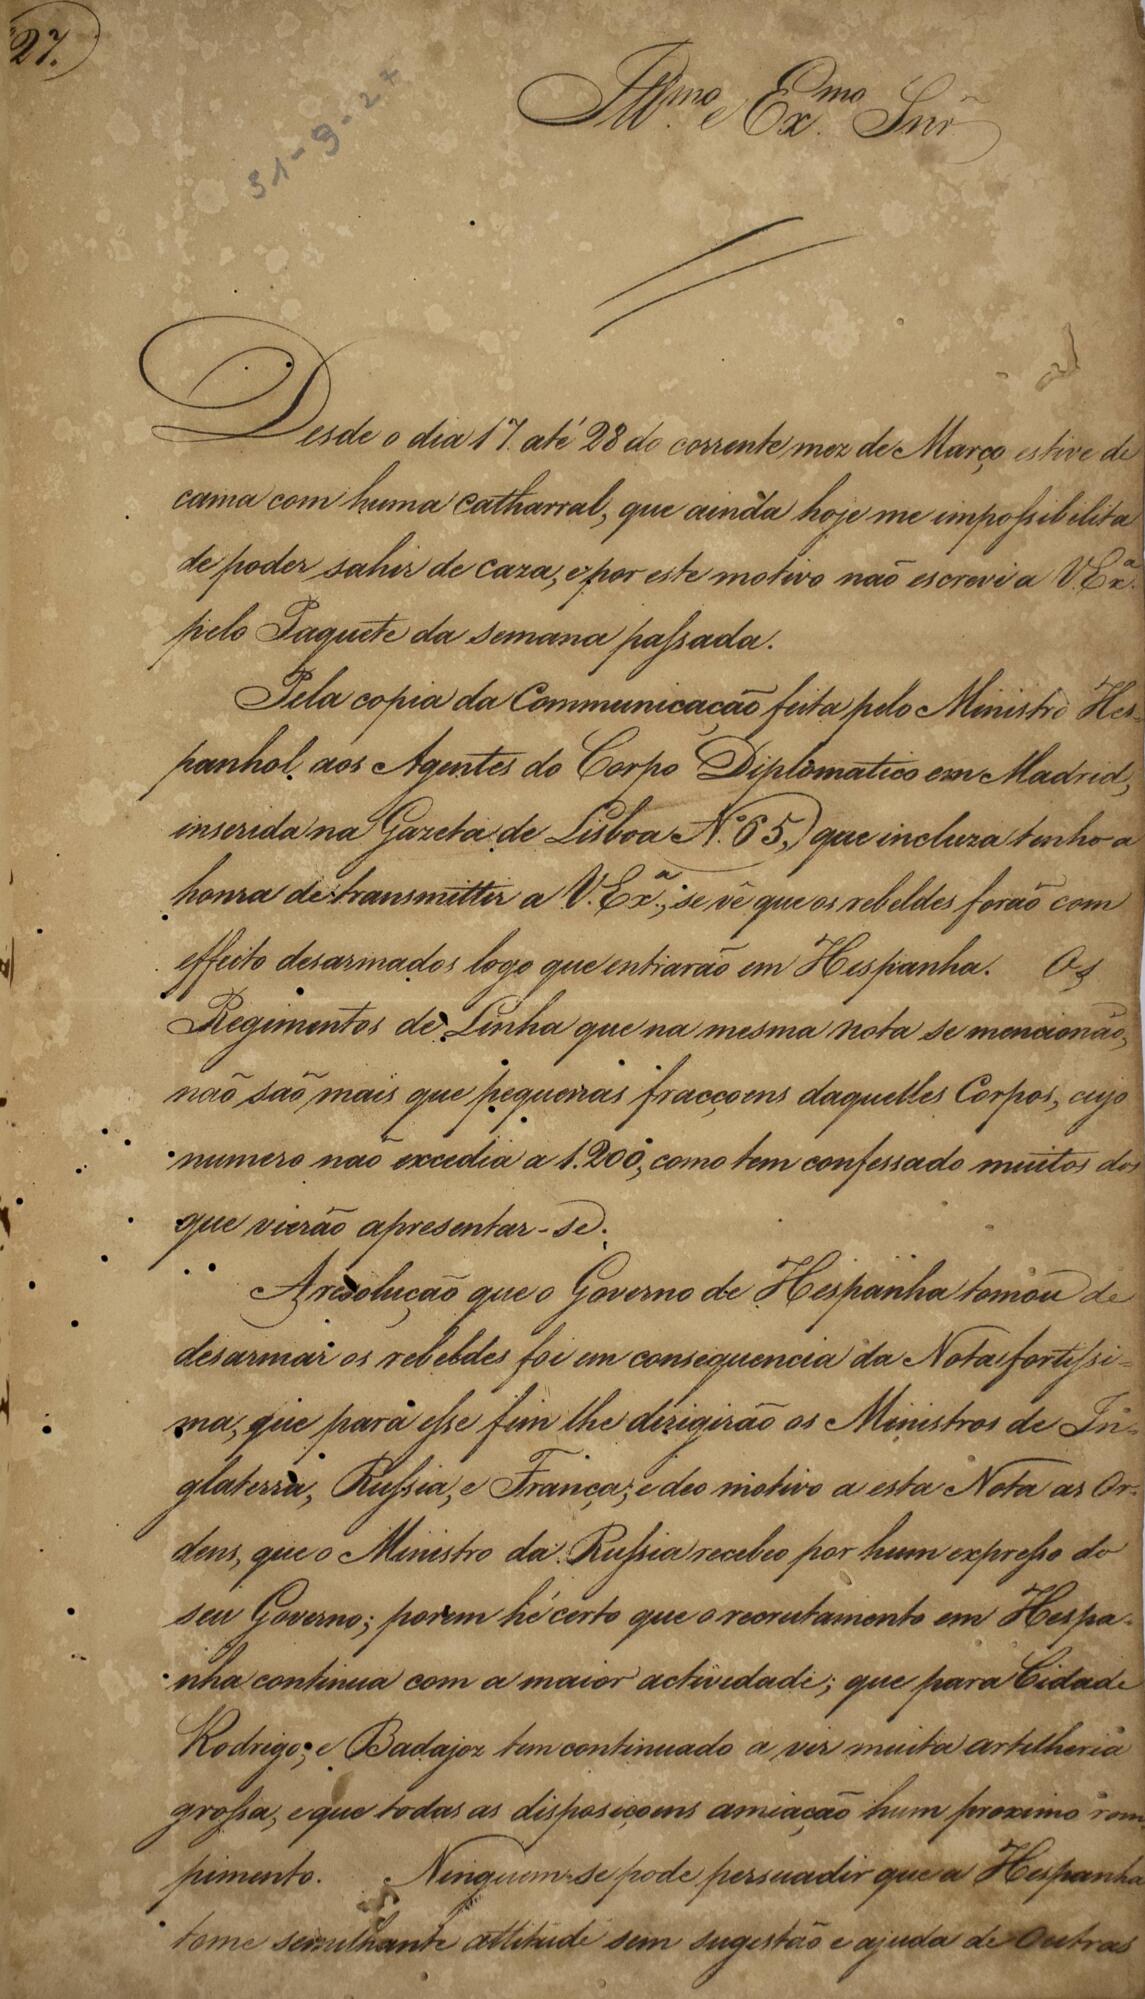 27.
31-9-27
Illmo e Exmo Snr
Desde o dia 17. até 28 do corrente mez de Março estive de
cama com huma catharral, que ainda hoje me impossibilita
de poder sahir de caza, e por este motivo não escrevi a V. Exa.
pelo Paquete da semana passada.
Pela copia da Communicação feita pelo Ministro Hes-
panhol aos Agentes do Corpo Diplomatico em Madrid,
inserida na Gazeta de Lisboa N.º 65, que incluza tenho a
honra de transmittir a V. Exa.; se vê que os rebeldes forão com
effeito desarmados logo que entrarão em Hespanha. Os
Regimentos de Linha que na mesma nota se mencionão,
não são mais que pequenas fracçoens daquelles Corpos, cujo
numero não excedia a 1.200, como tem confessado muitos dos
que vierão apresentar-se.
A resolução que o Governo de Hespanha tomou de
desarmar os rebeldes foi em consequencia da Nota fortissi-
ma, que para esse fim lhe dirigirão os Ministros de In-
glaterra, Russia, e França; e deo motivo a esta Nota as Or-
dens, que o Ministro da Russia recebeo por hum expresso do
seu Governo; porem hé certo que o recrutamento em Hespa-
nha continua com a maior actividade; que para Cidade
Rodrigo, e Badajoz tem continuado a vir muita artilheria
grossa, e que todas as disposiçoens amiação hum proximo rom-
pimento. Ninguem se pode persuadir que a Hespanha
tome semilhante attitude sem sugestão e ajuda de Outras